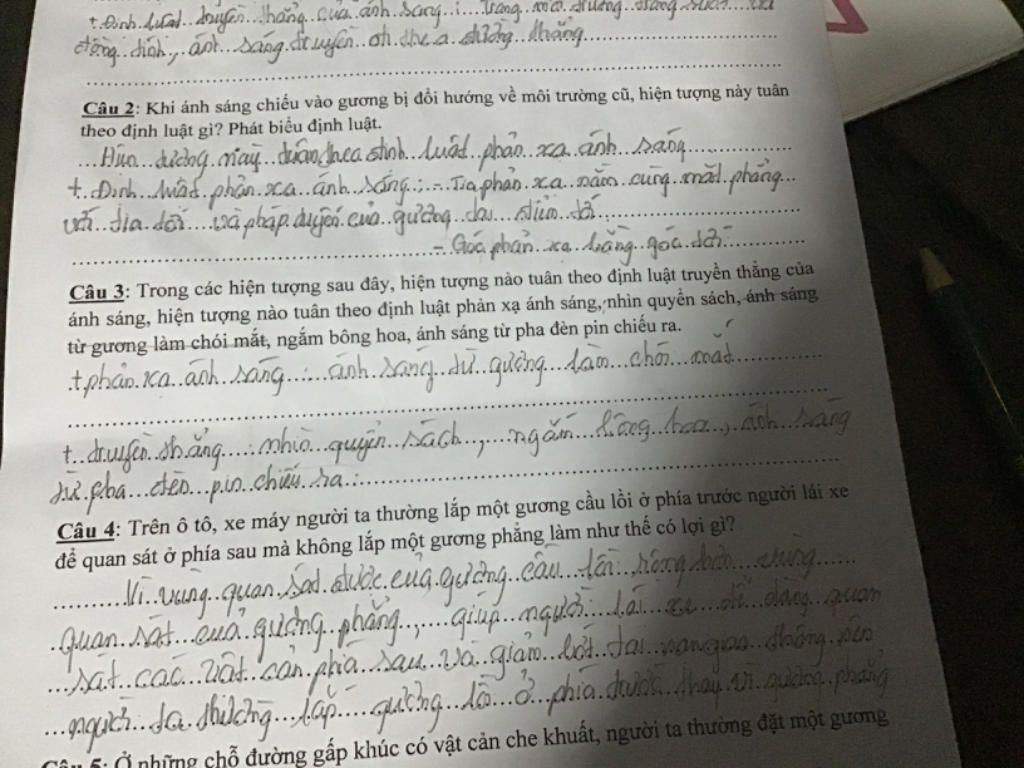 + Định luật truyền thẳng của ánh sáng : Trong môi trường trong suốt và
đồng tính, ánh sáng truyền đi theo đường thẳng
Câu 2: Khi ánh sáng chiếu vào gương bị đổi hướng về môi trường cũ, hiện tượng này tuân
theo định luật gì? Phát biểu định luật.
Hiện tượng này tuân theo định luật phản xạ ánh sáng
+. Định luật phản xạ ánh sáng : - Tia phản xạ nằm cùng mặt phẳng
với tia tới và pháp tuyến của gương tại điểm tới
- Góc phản xạ bằng góc tới
Câu 3: Trong các hiện tượng sau đây, hiện tượng nào tuân theo định luật truyền thẳng của
ánh sáng, hiện tượng nào tuân theo định luật phản xạ ánh sáng, nhìn quyển sách, ánh sáng
từ gương làm chói mắt, ngắm bông hoa, ánh sáng từ pha đèn pin chiếu ra.
+ phản xạ ánh sáng : ánh sáng từ gương làm chói mắt
+ truyền thẳng : nhìn quyển sách, ngắm bông hoa, ánh sáng
từ pha đèn pin chiếu ra
Câu 4: Trên ô tô, xe máy người ta thường lắp một gương cầu lồi ở phía trước người lái xe
để quan sát ở phía sau mà không lắp một gương phẳng làm như thế có lợi gì?
Vì vùng quan sát được của gương cầu lồi rộng hơn vùng
quan sát của gương phẳng, giúp người lái xe dễ dàng quan
sát các vật cản phía sau và giảm bớt tai nạn giao thông nên
người ta thường lắp gương lồi ở phía trước thay vì gương phẳng
Câu 5: Ở những chỗ đường gấp khúc có vật cản che khuất, người ta thường đặt một gương